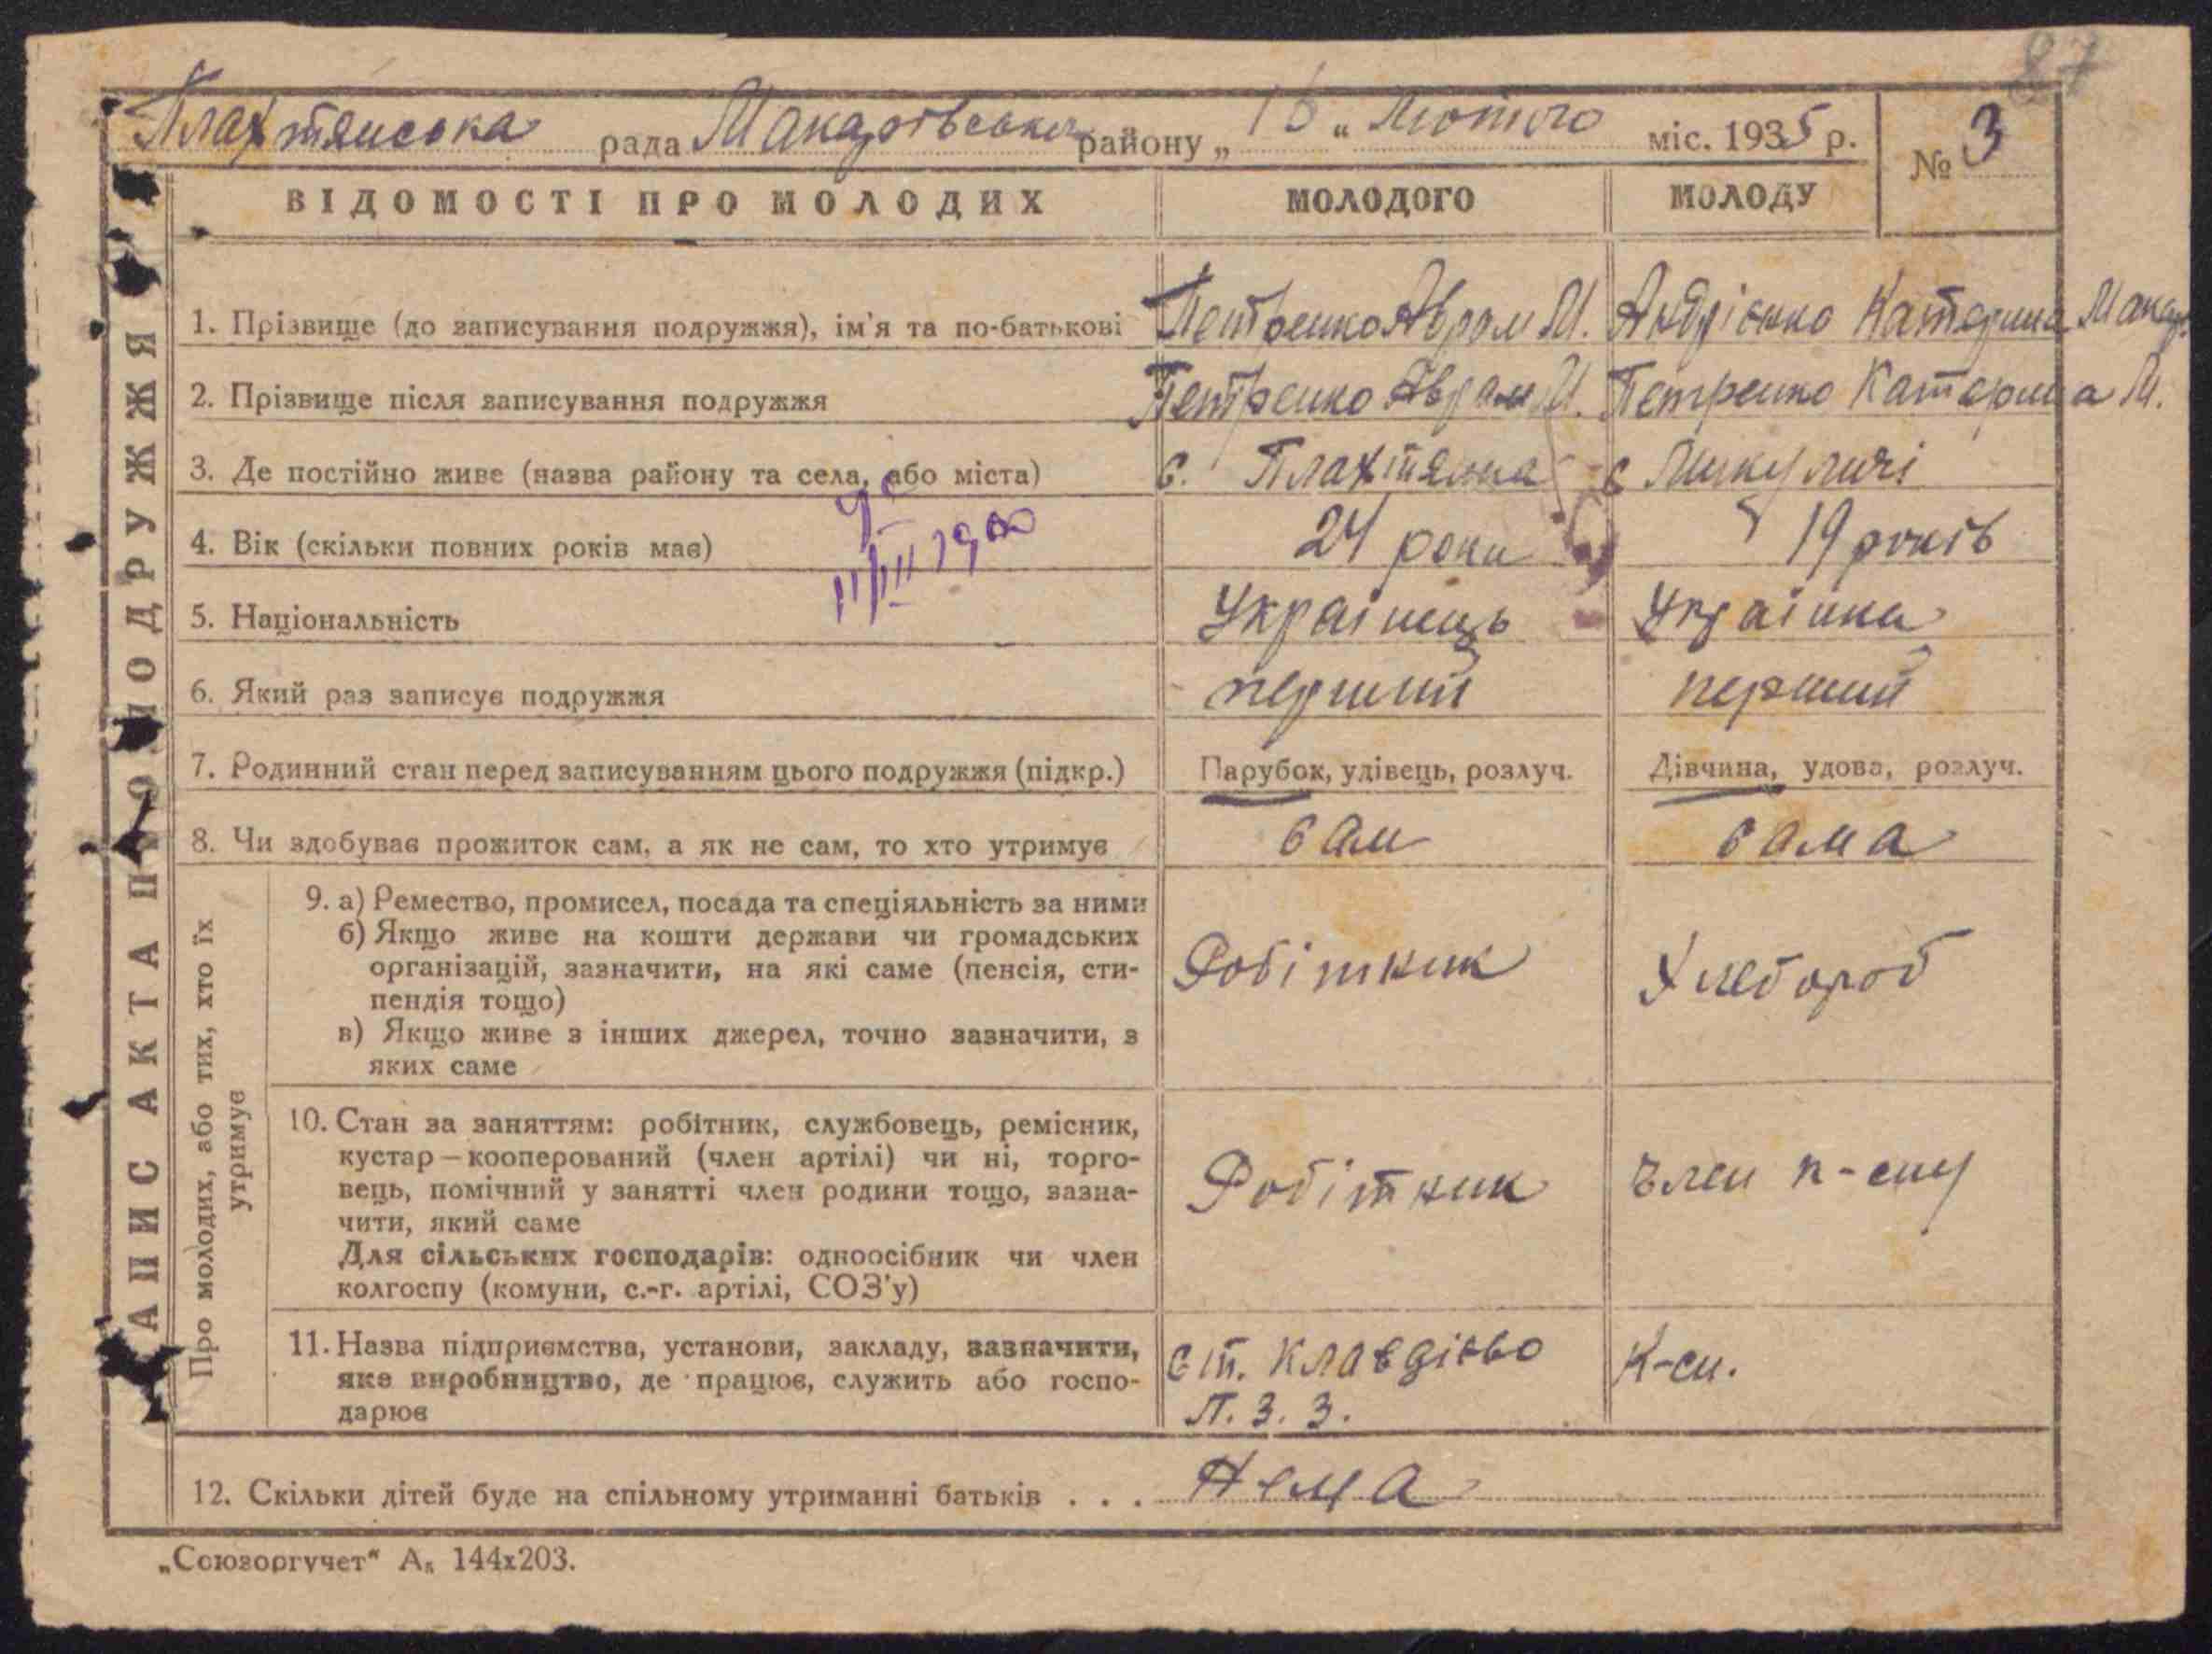 87
Плахтянська рада Макарівського району „ 13 “ Лютого міс. 1935 р. № 3
ВІДОМОСТІ ПРО МОЛОДИХ
МОЛОДОГО
МОЛОДУ
АПИС АКТА ПРО ПОДРУЖЖЯ
1. Прізвище (до записування подружжя), ім'я та по-батькові
Петренко Аврам М.
Андрієнко Катерина Макар.
2. Прізвище після записування подружжя
Петренко Аврам М.
Петренко Катерина М.
3. Де постійно живе (назва району та села, або міста)
с. Плахтянка
с Микуличі
4. Вік (скільки повних років має)
24 роки
19 років
5. Національність
Українець
Українка
6. Який раз записує подружжя
перший
перший
7. Родинний стан перед записуванням цього подружжя (підкр.)
Парубок, удівець, розлуч.
Дівчина, удова, розлуч.
8. Чи здобуває прожиток сам, а як не сам, то хто утримує
сам
сама
Про молодих, або тих, хто їх
утримує
9. а) Ремество, промисел, посада та спеціяльність за ними
б) Якщо живе на кошти держави чи громадських
організацій, зазначити, на які саме (пенсія, сти-
пендія тощо)
в) Якщо живе з інших джерел, точно зазначити, з
яких саме
Робітник
Хлебороб
10. Стан за заняттям: робітник, службовець, ремісник,
кустар — кооперований (член артілі) чи ні, торго-
вець, помічний у занятті член родини тощо, зазна-
чити, який саме
Для сільських господарів: одноосібник чи член
колгоспу (комуни, с.-г. артілі, СОЗ'у)
Робітник
Член к-спу
11. Назва підприємства, установи, закладу, зазначити,
яке виробництво, де працює, служить або госпо-
дарює
ст. Клавдієво
Л. З. З.
К-сп.
12. Скільки дітей буде на спільному утриманні батьків . . .
Нема
„Союзоргучет“ А₅ 144х203.